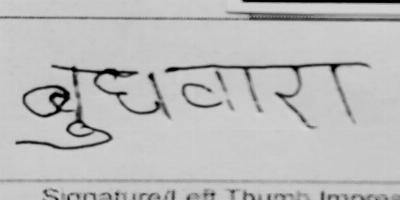 बुधवारा
Signature/Left Thumb Impres